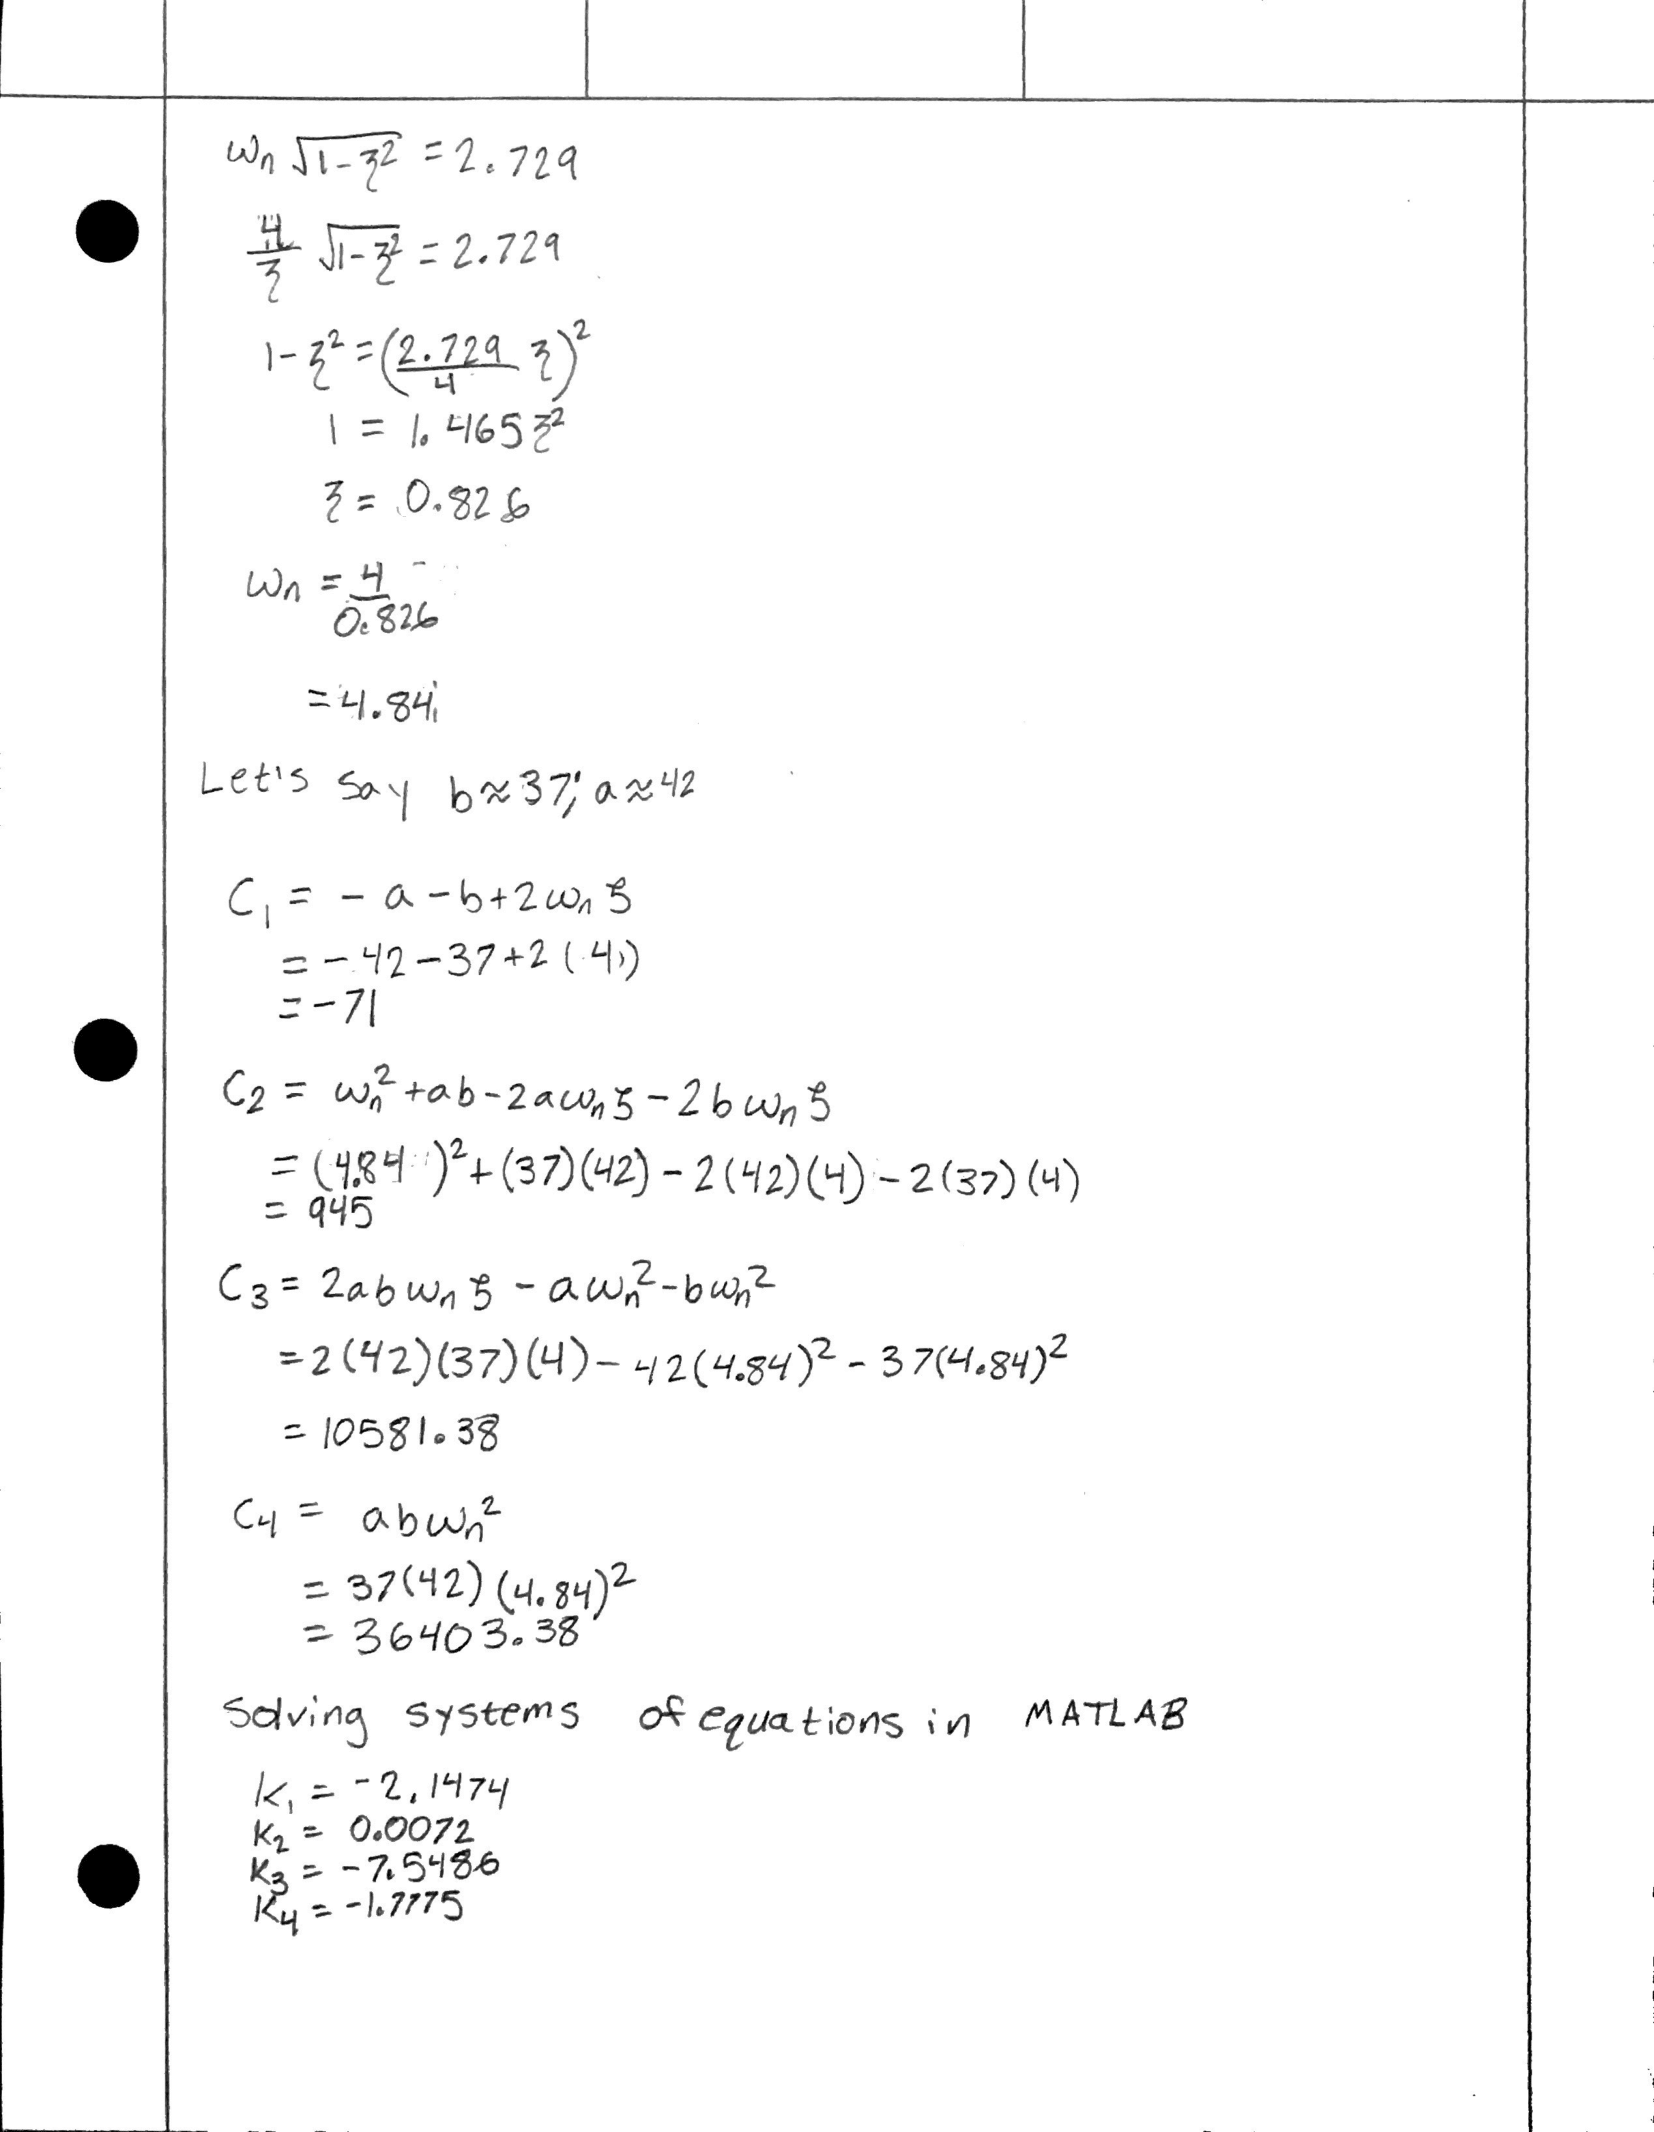 ωn √(1-ξ²) = 2.729
4/ξ √(1-ξ²) = 2.729
1-ξ² = (2.729/4 ξ)²
1 = 1.465ξ²
ξ = 0.826
ωn = 4/0.826
= 4.84
Let's say b≈37; a≈42
C1 = -a-b+2ωnξ
= -42-37+2(4)
= -71
C2 = ωn²+ab-2aωnξ-2bωnξ
= (4.84)²+(37)(42)-2(42)(4)-2(37)(4)
= 945
C3 = 2abωnξ-aωn²-bωn²
= 2(42)(37)(4)-42(4.84)²-37(4.84)²
= 10581.38
C4 = abωn²
= 37(42)(4.84)²
= 36403.38
Solving systems of equations in MATLAB
K1 = -2.1474
K2 = 0.0072
K3 = -7.5486
K4 = -1.7775